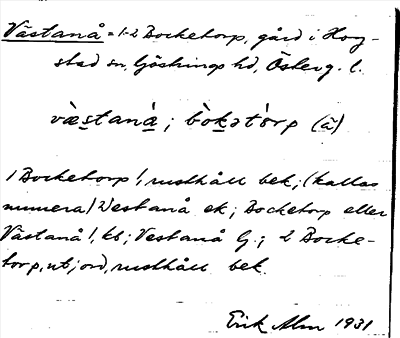 Västanå = 1-2 Bocketorp, gård i Hog-
stad sn, Göstrings hd, Österg. l.
vàs̲taná̲; bòk̲ətór̀p (ã)
1 Bocketorp!, rusthåll bek; (kallas
numera) Westanå ek; Bocketorp eller
Västanå!, kb; Vestanå G; 2 Bocke-
torp, utjord, rusthåll bek.
Erik Alm 1931